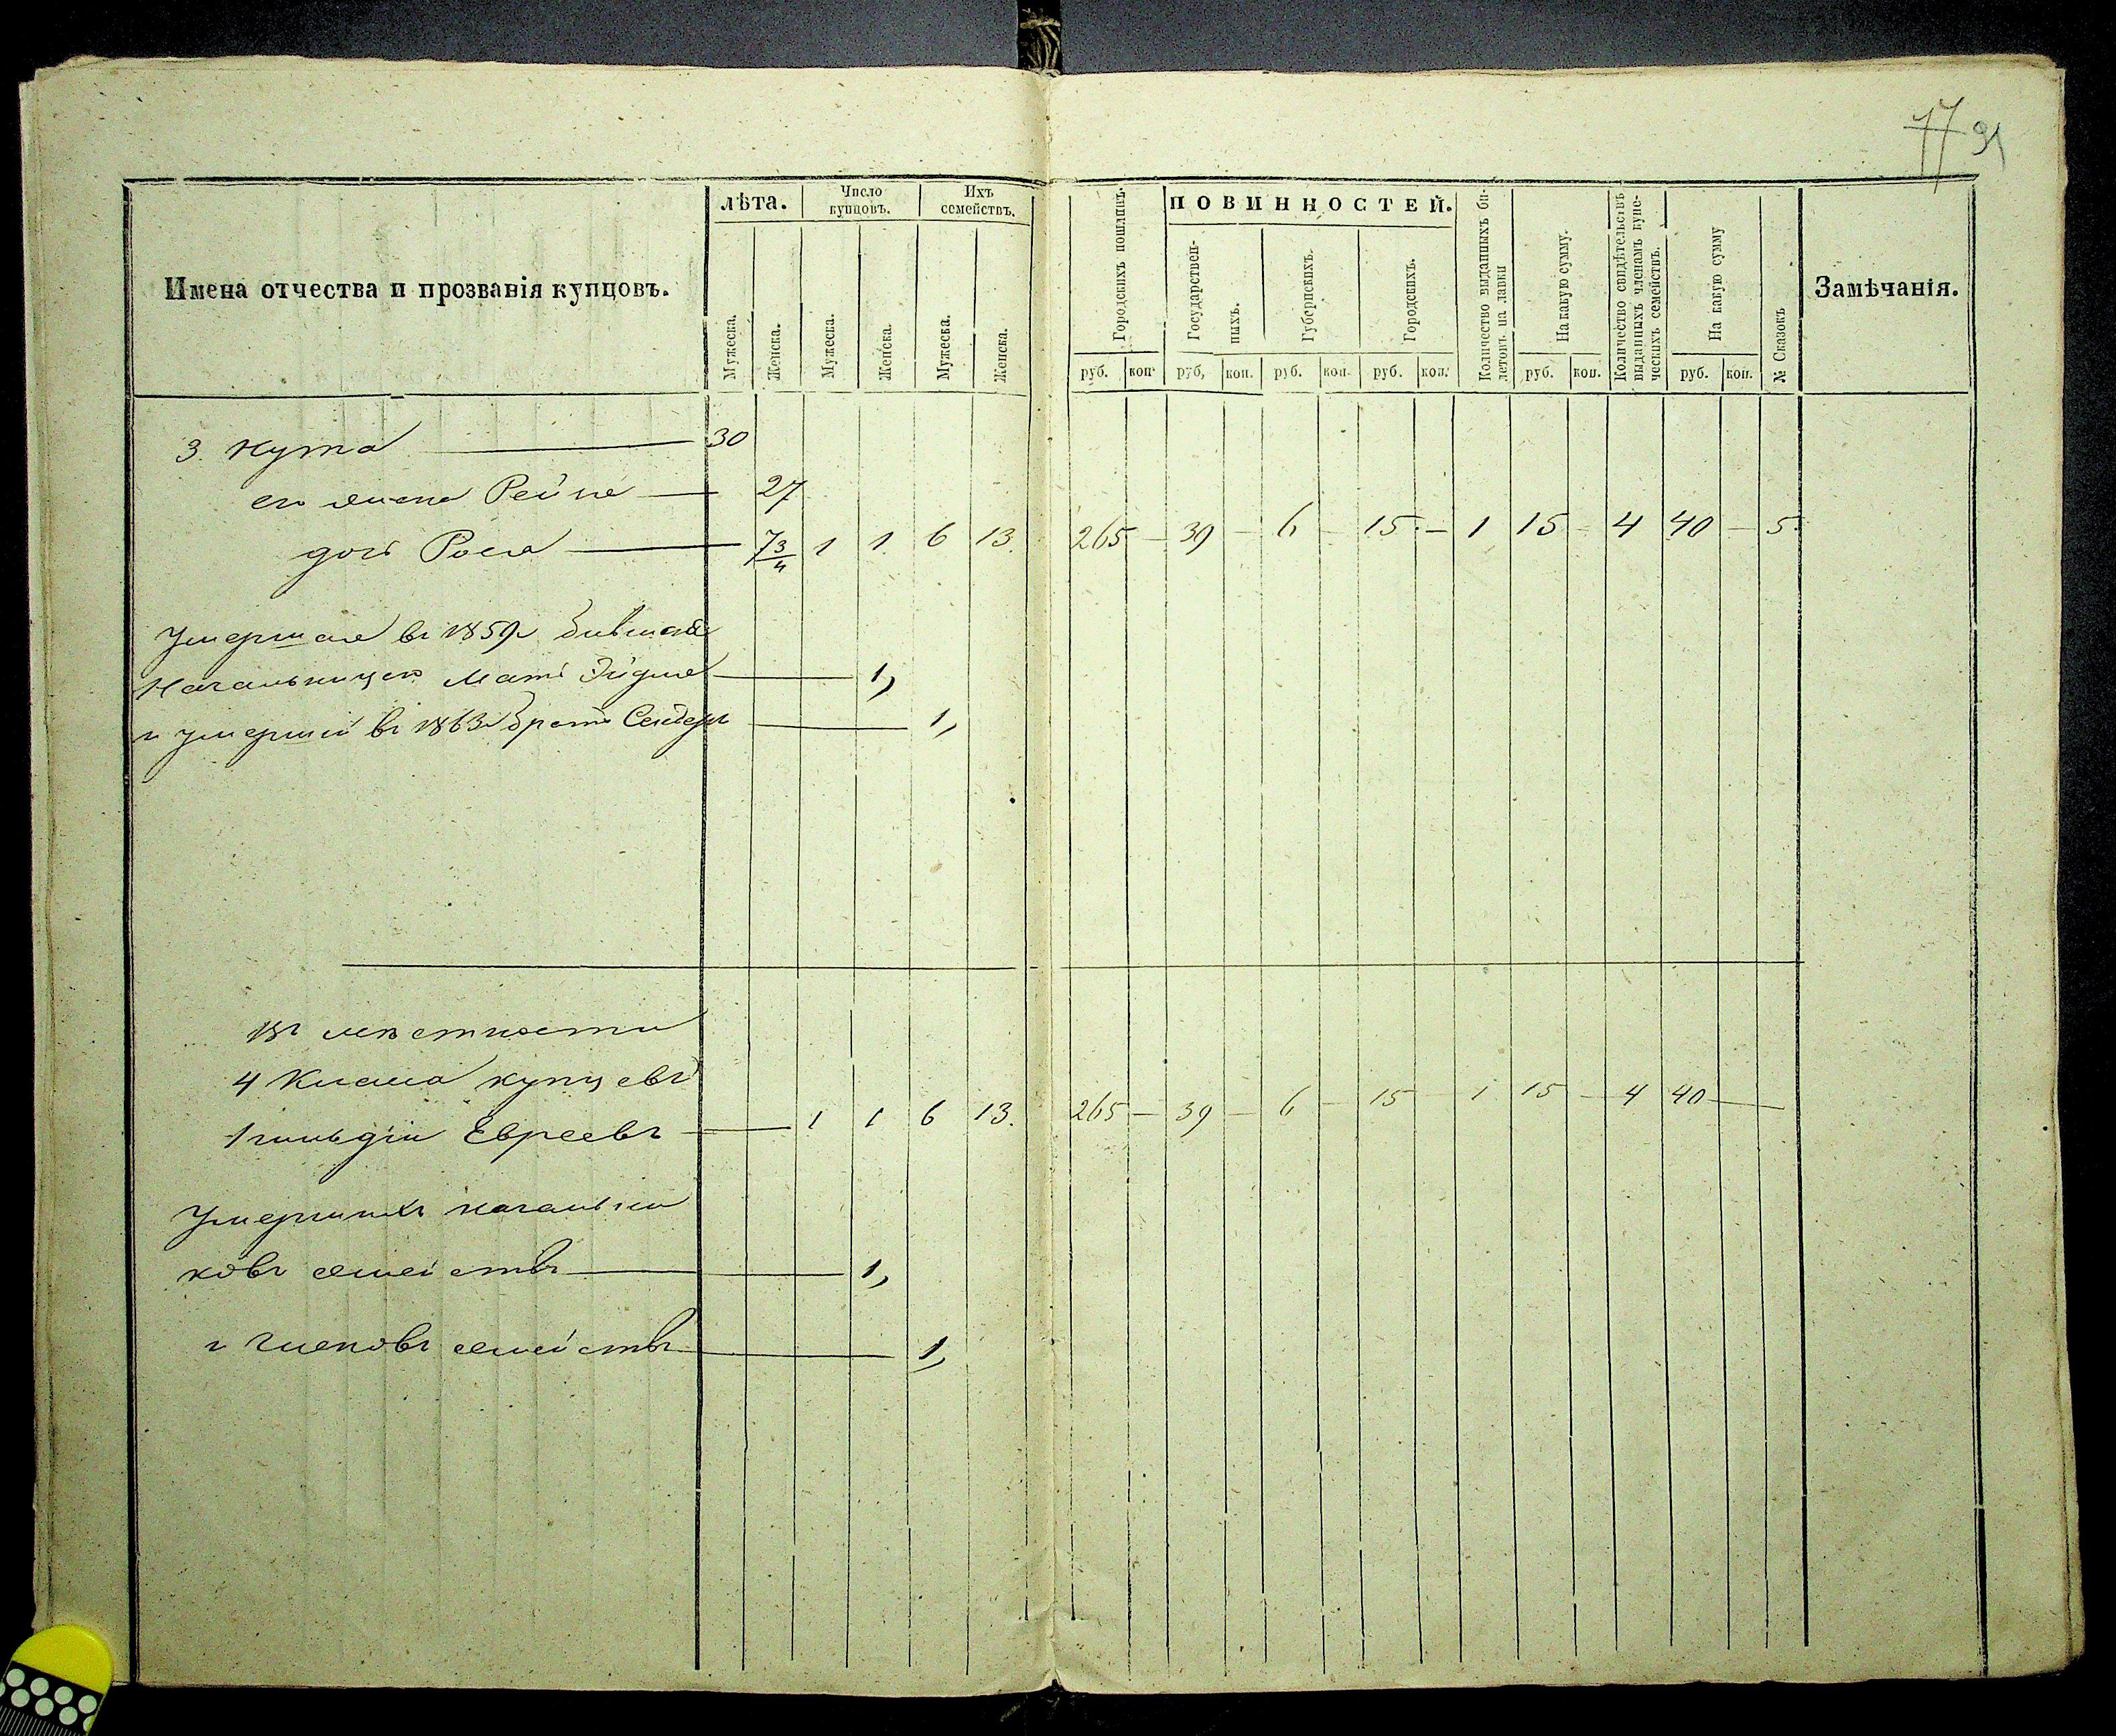 77 91
Имена отчества и прозванія купцовъ.
лѣта.
Число купцовъ.
Ихъ семействъ.
Мужеска.
Женска.
Мужеска.
Женска.
Мужеска.
Женска.
Городскихъ пошлинъ.
ПОВИННОСТЕЙ.
Государственныхъ.
Губернскихъ.
Городскихъ.
Количество выданныхъ билетовъ на лавки
На какую сумму.
Количество свидѣтельствъ выданныхъ членамъ купеческихъ семействъ.
На какую сумму
№ Сказокъ
Замѣчанія.
руб. коп. руб. коп. руб. коп. руб. коп. руб. коп. руб. коп.
3. Нута — 30
его жена Рейне — 27
дочь Роса — 7 3/4 1 1 6 13. 265 — 39 — 6 — 15 — 1 15 — 4 40 — 5.
Умершая въ 1859г бывшая
Начальницею мать Эйдля — 1,
и умершій въ 1863г братъ Сендеръ — 1,
Въ мѣстности
4 класа купцевъ
1 гильдіи Евреевъ — 1 1 6 13. 265 — 39 — 6 — 15 — 1 15 — 4 40 —
Умершихъ начальни
ковъ семействъ — 1,
и членовъ семействъ — 1,